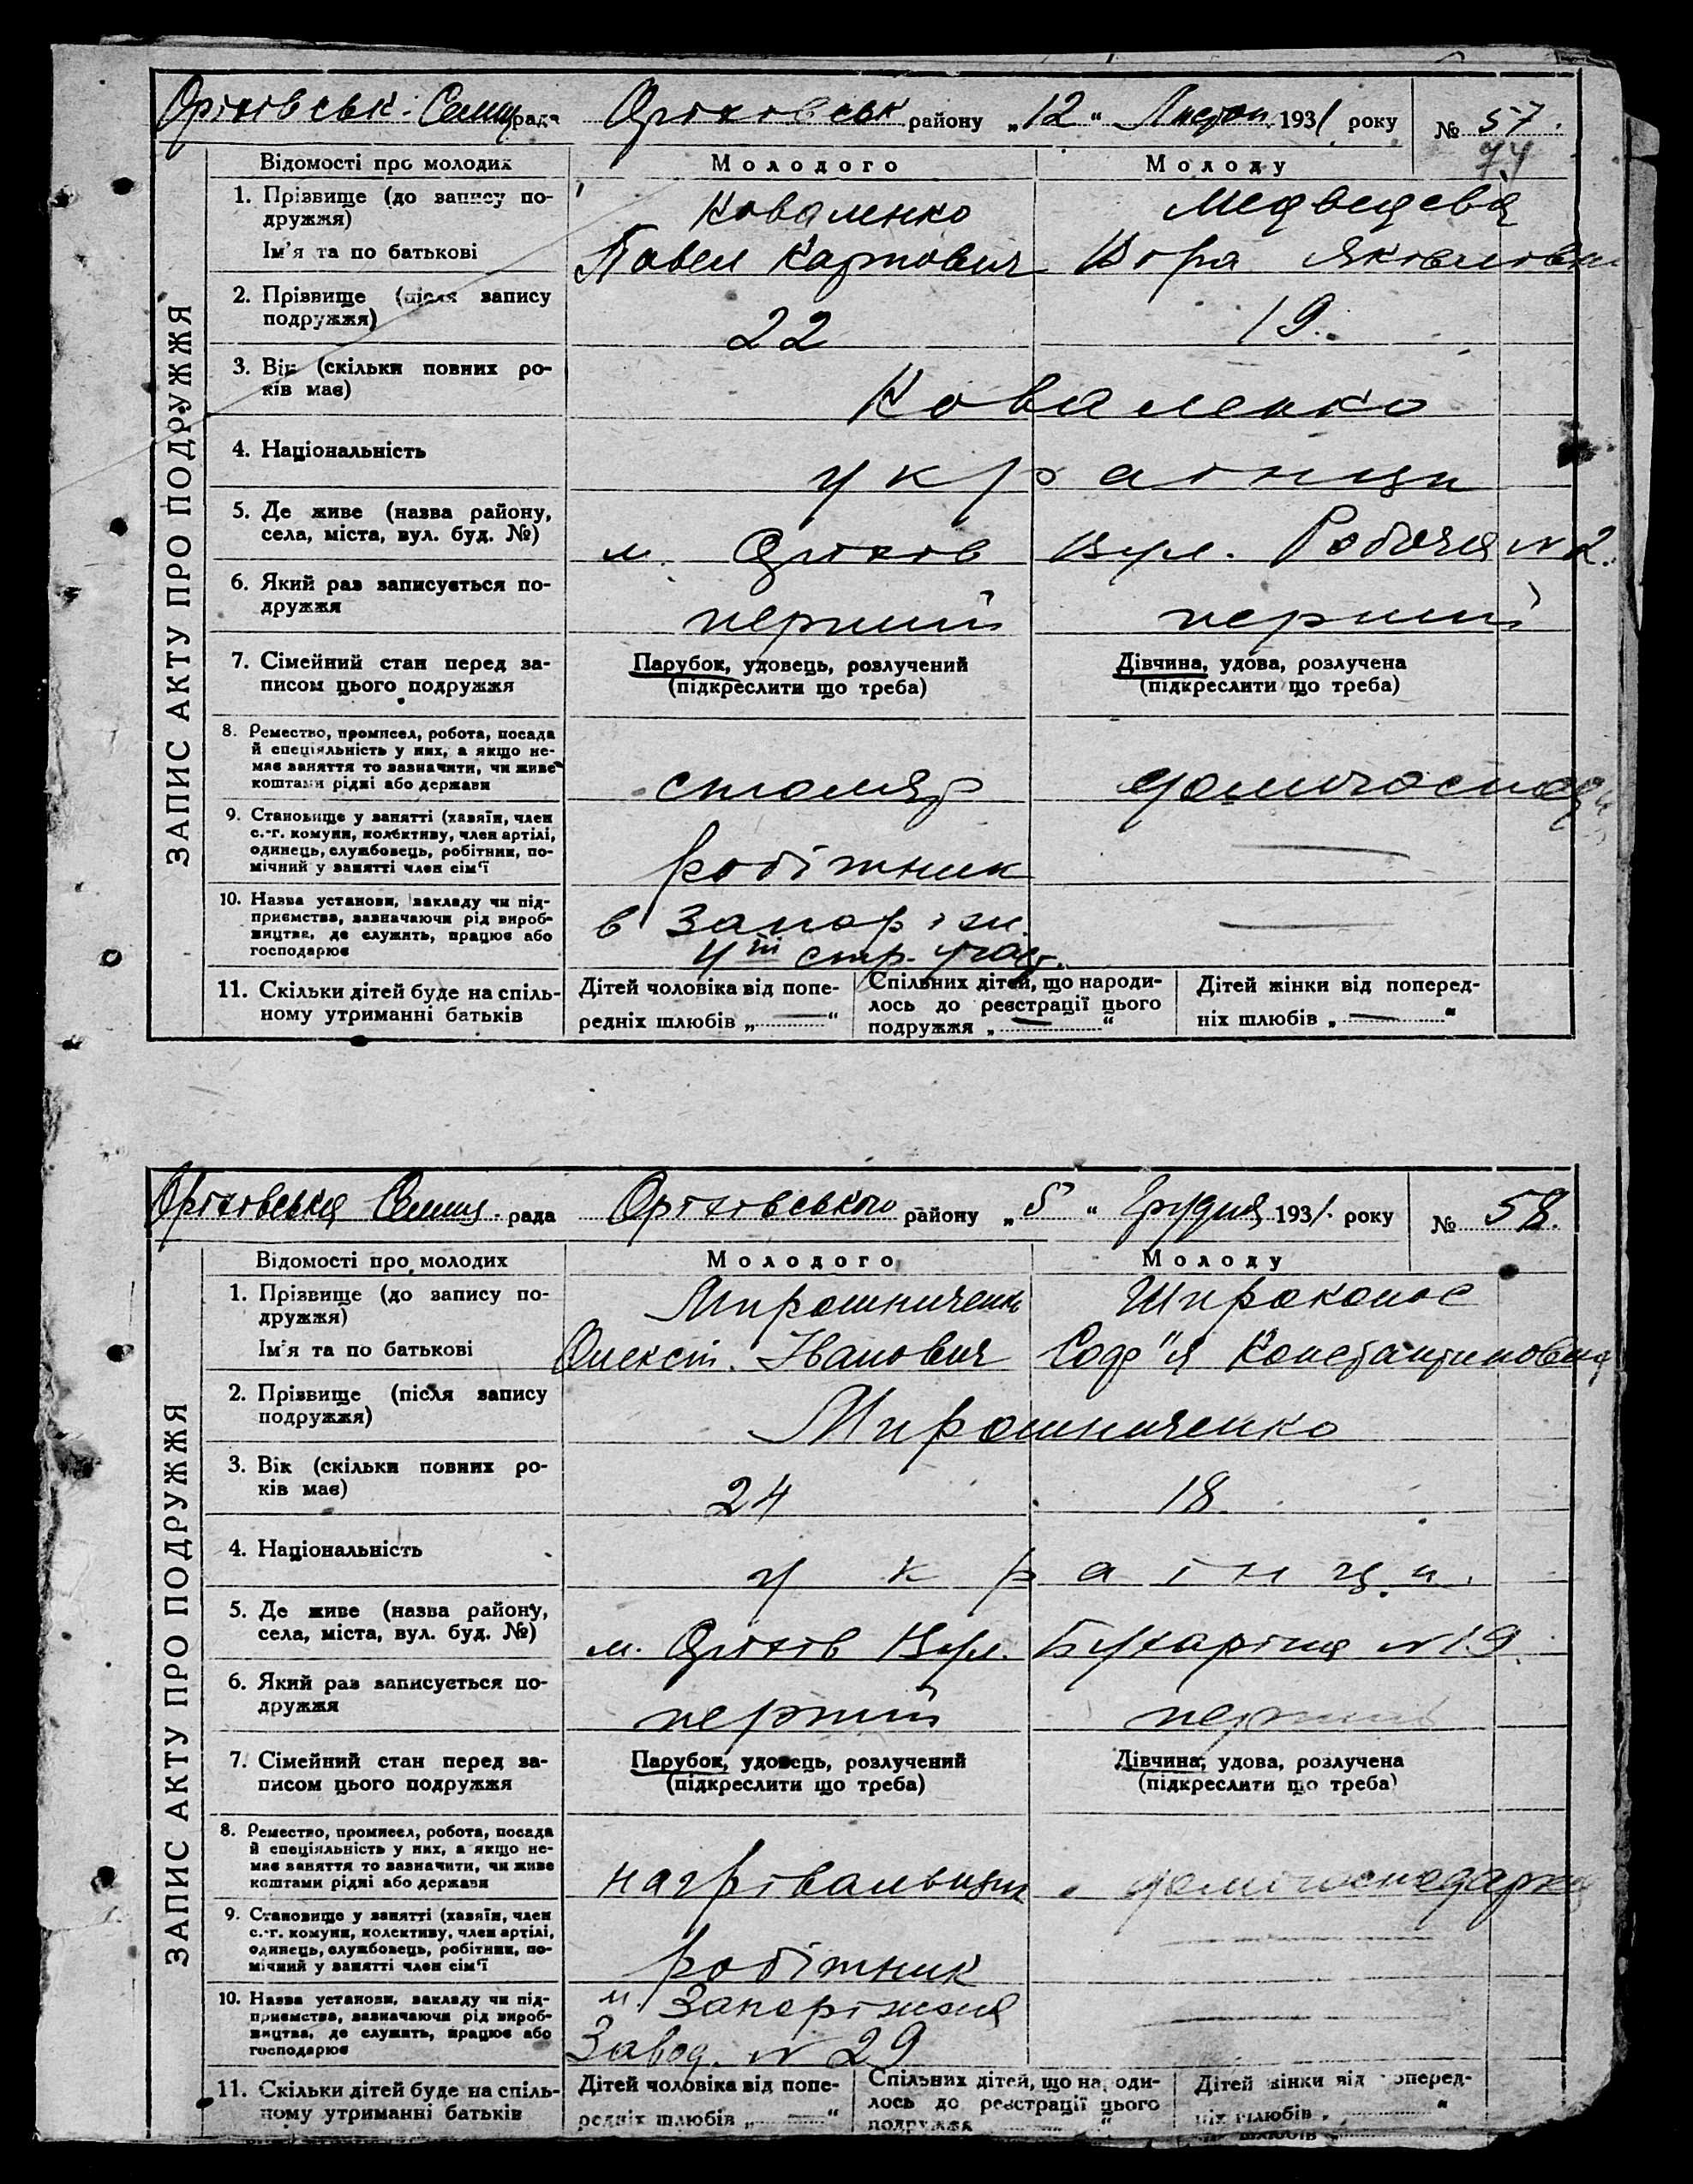 Оріхівськ. Селищ рада Оріховськ району „12“ Листоп. 1931 року № 57.
74
Відомості про молодих Молодого Молоду
1. Прізвище (до запису по- Коваленко Медведева
дружжя)
Ім'я та по батькові Павел Карпович Віра Яковлівна
2. Прізвище (після запису
подружжя) 22 19.
3. Вік (скільки повних ро-
ків має) Коваленко
4. Національність українци
5. Де живе (назва району,
села, міста, вул. буд. №) м. Оріхів Вул. Робочя № 2.
6. Який раз записується по-
дружжя перший перший
7. Сімейний стан перед за- Парубок, удовець, розлучений Дівчина, удова, розлучена
писом цього подружжя (підкреслити що треба) (підкреслити що треба)
8. Ремество, промисел, робота, посада
й спеціяльність у них, а якщо не-
має заняття то зазначити, чи живе
коштами рідні або держави столяр
9. Становище у занятті (хазяїн, член
с.-г. комуни, колективу, член артілі,
одинець, службовець, робітник, по-
мічний у занятті член сім'ї робітник —
10. Назва установи, закладу чи під-
приємства, зазначаючи рід вироб- в Запоріж. —
ництва, де служить, працює або
господарює 4й стр. участ.
11. Скільки дітей буде на спіль- Дітей чоловіка від попе- Спільних дітей, що народи- Дітей жінки від поперед-
ному утриманні батьків редніх шлюбів „—“ лось до реєстрації цього ніх шлюбів „—“
подружжя „—“
ЗАПИС АКТУ ПРО ПОДРУЖЖЯ
Оріхівська Селищ. рада Оріхівського району „5“ Грудня 1931. року № 58.
Відомості про молодих Молодого Молоду
1. Прізвище (до запису по- Мирошниченко Широконос
дружжя)
Ім'я та по батькові Олексій. Іванович Соф"я Константиновна
2. Прізвище (після запису
подружжя) Мирошниченко
3. Вік (скільки повних ро-
ків має) 24 18.
4. Національність українци.
5. Де живе (назва району,
села, міста, вул. буд. №) м. Оріхів Вул. Бухаріна № 19.
6. Який раз записується по-
дружжя перший перший
7. Сімейний стан перед за- Парубок, удовець, розлучений Дівчина, удова, розлучена
писом цього подружжя (підкреслити що треба) (підкреслити що треба)
8. Ремество, промисел, робота, посада
й спеціяльність у них, а якщо не-
має заняття то зазначити, чи живе
коштами рідні або держави нагрівальщик домогосподарка
9. Становище у занятті (хазяїн, член
с.-г. комуни, колективу, член артілі,
одинець, службовець, робітник, по-
мічний у занятті член сім'ї робітник —
10. Назва установи, закладу чи під- м. Запоріжжя
приємства, зазначаючи рід вироб- —
ництва, де служить, працює або
господарює Завод. № 29
11. Скільки дітей буде на спіль- Дітей чоловіка від попе- Спільних дітей, що народи- Дітей жінки від поперед-
ному утриманні батьків редніх шлюбів „—“ лось до реєстрації цього ніх шлюбів „ “
подружжя „ “
ЗАПИС АКТУ ПРО ПОДРУЖЖЯ